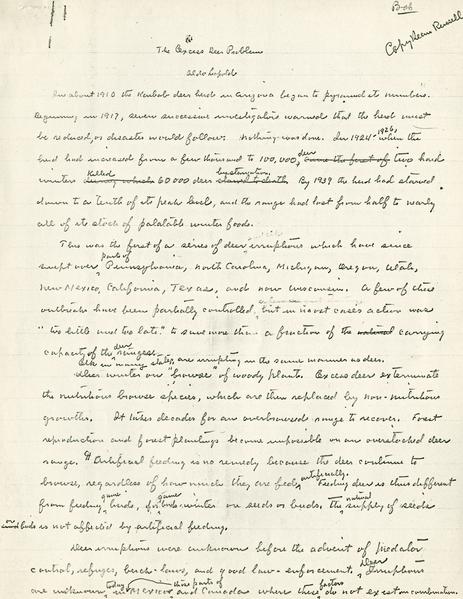 Bob
Copy Dean Russell
The Excess Deer Problem
Aldo Leopold
In about 1910 the Kaibab deer herd in Arizona began to pyramid its numbers.
Beginning in 1917, seven successive investigators warned that the herd must
be reduced, or disaster would follow. Nothing was done. In 1924 1926, when the
herd had increased from a few thousand to 100,000, deer and the first of two hard
winters killed 60000 deer by starvation starved to death. By 1939 the herd had starved
down to a tenth of its peak level, and the range had lost from half to nearly
all of its stock of palatable winter foods.
This was the first of a series of deer irruptions which have since
swept over parts of Pennsylvania, North Carolina, Michigan, Oregon, Utah,
New Mexico, California, Texas, and now Wisconsin. A few of these
outbreaks have been partially controlled, but in most cases action was
"too little and too late" to save more than a fraction of the natural carrying
capacity of the deer ranges.
Elk in many states, are irrupting in the same manner as deer.
Deer winter on "browse" of woody plants. Excess deer exterminate
the nutritious browse species, which are then replaced by non-nutritious
growths. It takes decades for an overbrowsed range to recover. Forest
reproduction and forest plantings become impossible on an overstocked deer
range. ¶ Artificial feeding is no remedy because the deer continue to
browse, regardless of how much they are fed artificially. Feeding deer is thus different
from feeding game birds, for game birds winter on seeds or buds. The natural supply of seeds
and buds is not affected by artificial feeding.
Deer irruptions were unknown before the advent of predator
control, refuges, buck-laws, and good law-enforcement. Deer irruptions
are unknown today in those parts of Mexico and Canada where these factors do not exist in combination.